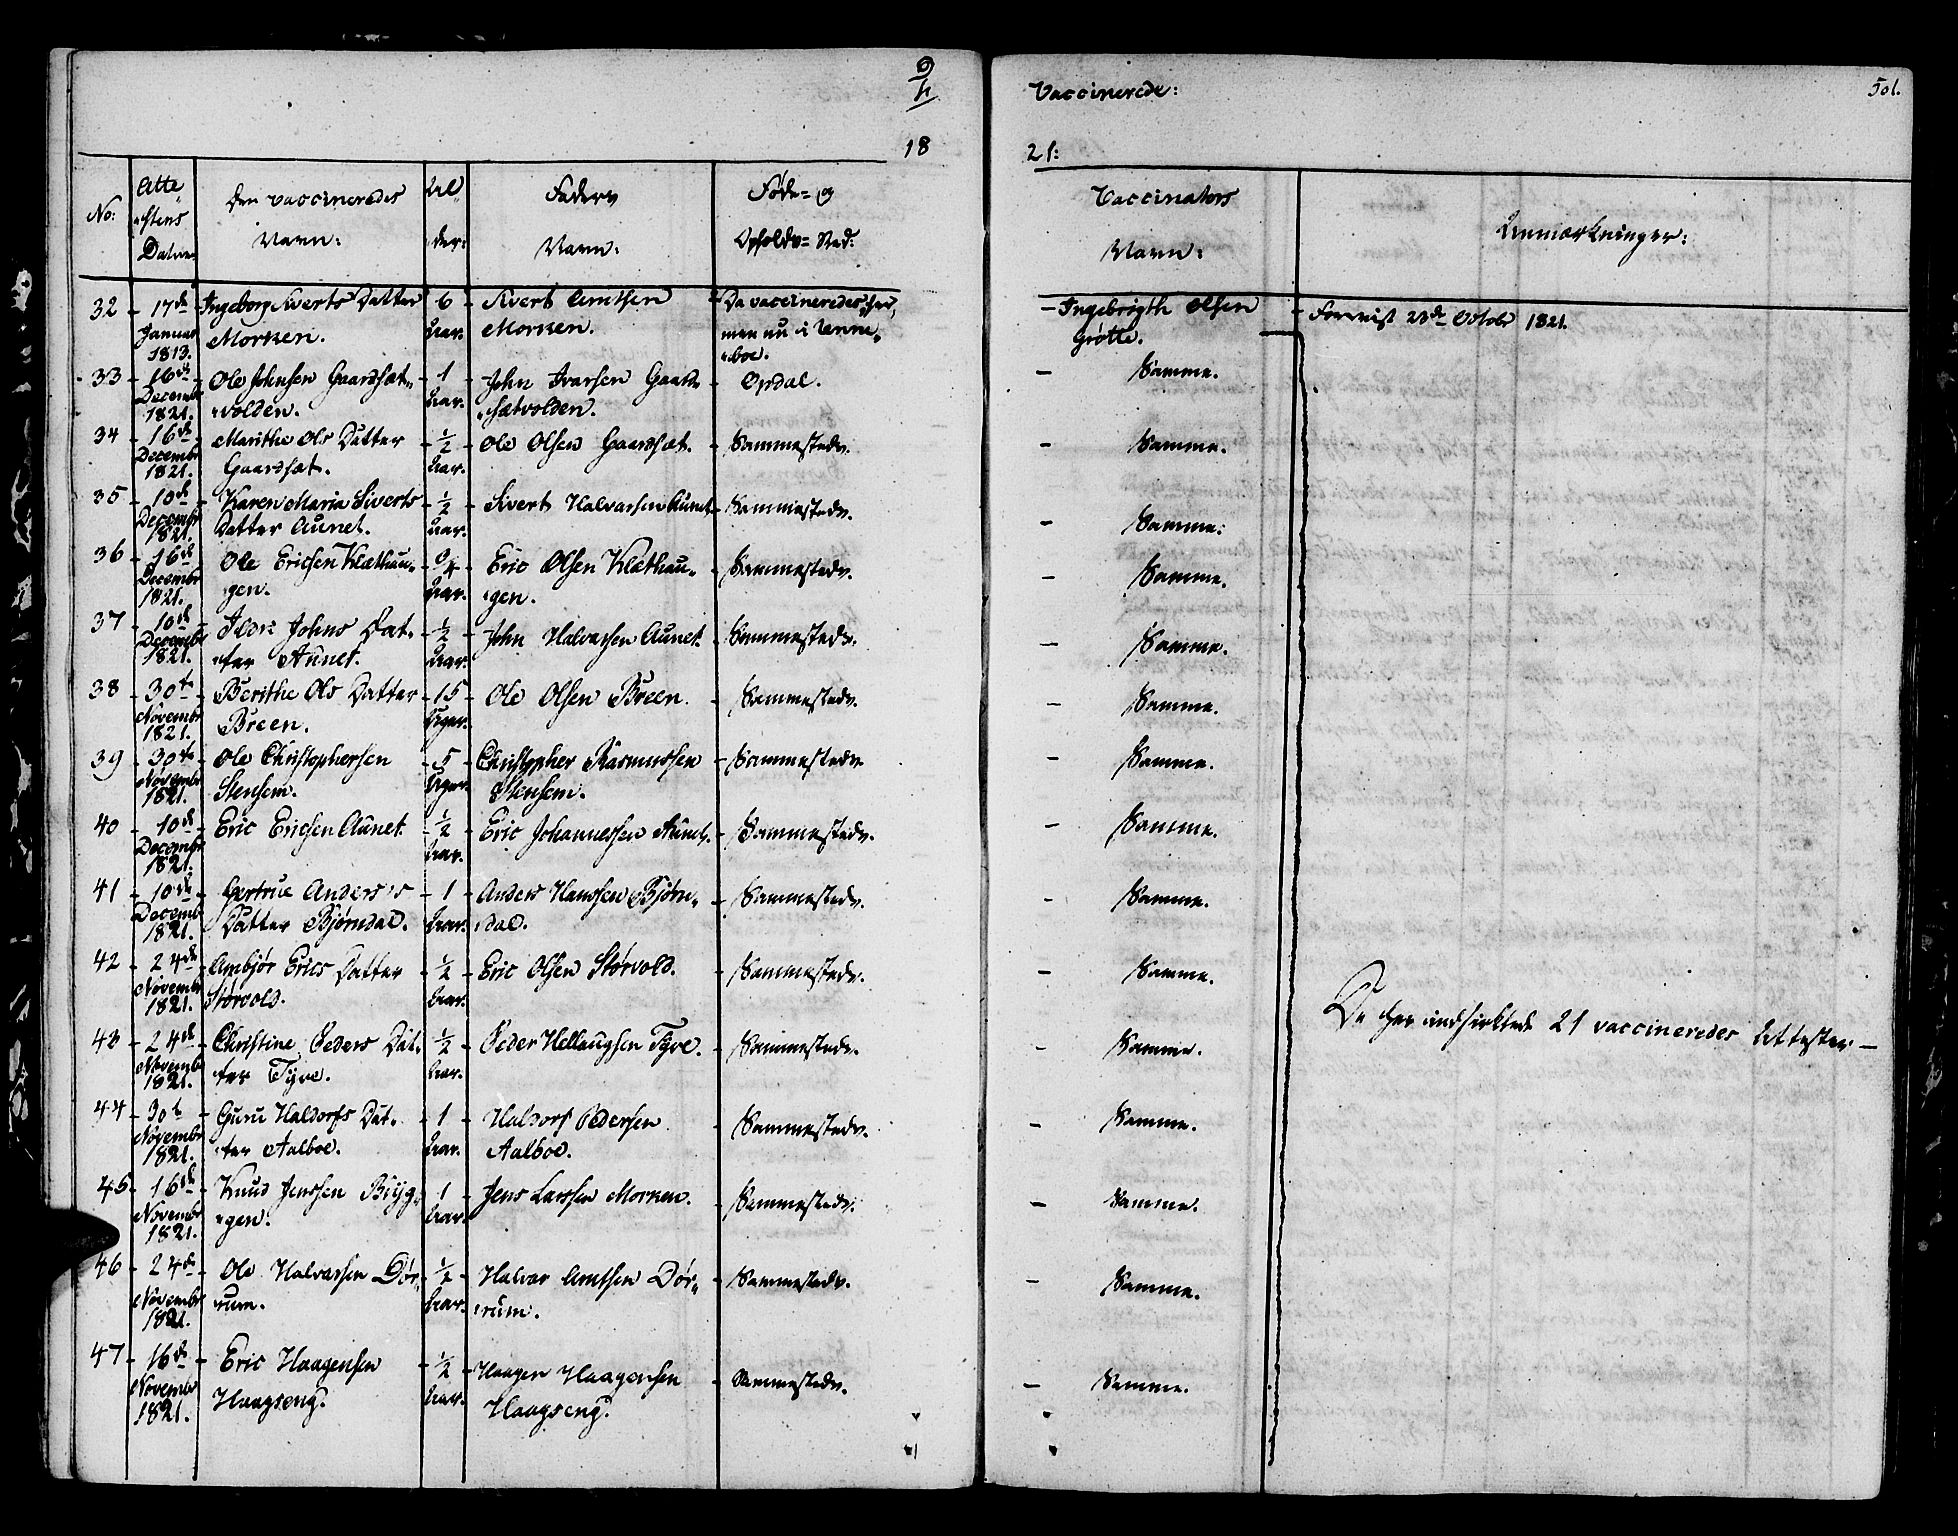 9/h
Vaccinerede:
Fol.
18
21:
No:
Atte
"stens
Datum
Den vaccineredes
Navn:
Al
der:
Faders
Navn:
Føde= og
Opholds= Sted:
Vaccinators
Navn:
Anmærkninger:
32 - 17de Januar 1813. Ingeborg Siverts Datter Morken. - 6 Aar. - Sivert Arntsen Morken. - Da vaccineredes her, men nu i - Ingebrigth Olsen Grøtte. - Forevist 28de Octobr 1821.
33 - 16de Decembr 1821. - Ole Johnsen Gaardsæt„ „volden. - 1 Aar. - John Ivarsen Gaard„ „sætvolden. - Opdal. - Samme.
34 - 16de Decembr 1821. - Marithe Ols Datter Gaardsæt. - ½ Aar. - Ole Olsen Gaardsæt. - Sammesteds. - Samme.
35 - 10de Decembr 1821. - Karen Maria Siverts Datter Aunet. - ½ Aar. - Sivert Halvarsen Aunet - Sammesteds. - Samme:
36 - 16de Decembr 1821. - Ole Ericsen Klæthau„ „gen. - ¾ Aar. - Eric Olsen Klæthau„ „gen. - Sammesteds. - Samme.
37 - 10de Decembr 1821. - Ildri Johns Dat„ „ter Aunet. - ½ Aar. - John Halvarsen Aunet. - Sammesteds. - Samme.
38 - 30te Novembr 1821. - Berithe Ols Datter Breen. - 15 Uger. - Ole Olsen Breen. - Sammesteds. - Samme.
39 - 30te Novembr 1821. - Ole Christophersen Stensem. - 5 Uger. - Christopher Rasmussen Stensem. - Sammesteds. - Samme.
40 - 10de Decembr 1821. - Eric Ericsen Aunet. - ½ Aar. - Eric Johannessen Aunet. - Sammesteds. - Samme.
41 - 10de Decembr 1821. - Gertrue Anders's Datter Bjørndal. - 1 Aar. - Anders Hanssen Bjørn„ „dal. - Sammesteds. - Samme.
42 - 24de Novembr 1821. - Ambjør Erics Datter Størvold. - ½ Aar. - Eric Olsen Størvold. - Sammesteds. - Samme.
43 - 24de Novembr 1821. - Christine Peders Dat„ „ter Tyve. - ½ Aar. - Peder Hellaugsen Tyve. - Sammesteds. - Samme.
44 - 30te Novembr 1821. - Guru Haldorss Dat„ „ter Aalboe. - 1 Aar. - Haldors Pedersen Aalboe. - Sammesteds. - Samme.
45 - 16de Novembr 1821. - Knud Jenssen Bryg„ „gen. - 1 Aar. - Jens Larssen Morken. - Sammesteds. - Samme.
46 - 24de Novembr 1821. - Ole Halvarsen Dør„ „rum. - ½ Aar. - Halvar Arntsen Dør„ „rum. - Sammesteds. - Samme.
47 - 16de Novembr 1821. - Eric Haagensen Haagseng. - ½ Aar. - Haagen Haagensen Haagseng. - Sammesteds. - Samme.
De her 21 vaccineredes Attester —